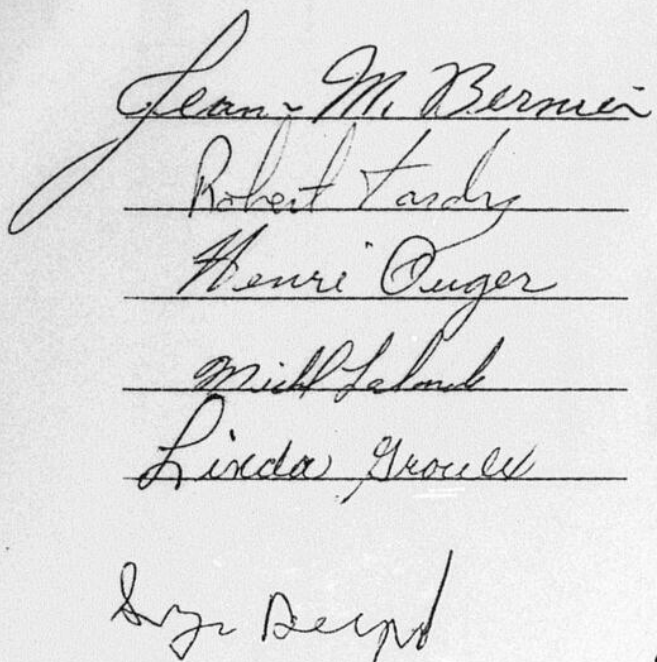 Jean-M. Bernier
Robert Tardy
Henri Ouger
Michel Lalonde
Linda Groulx